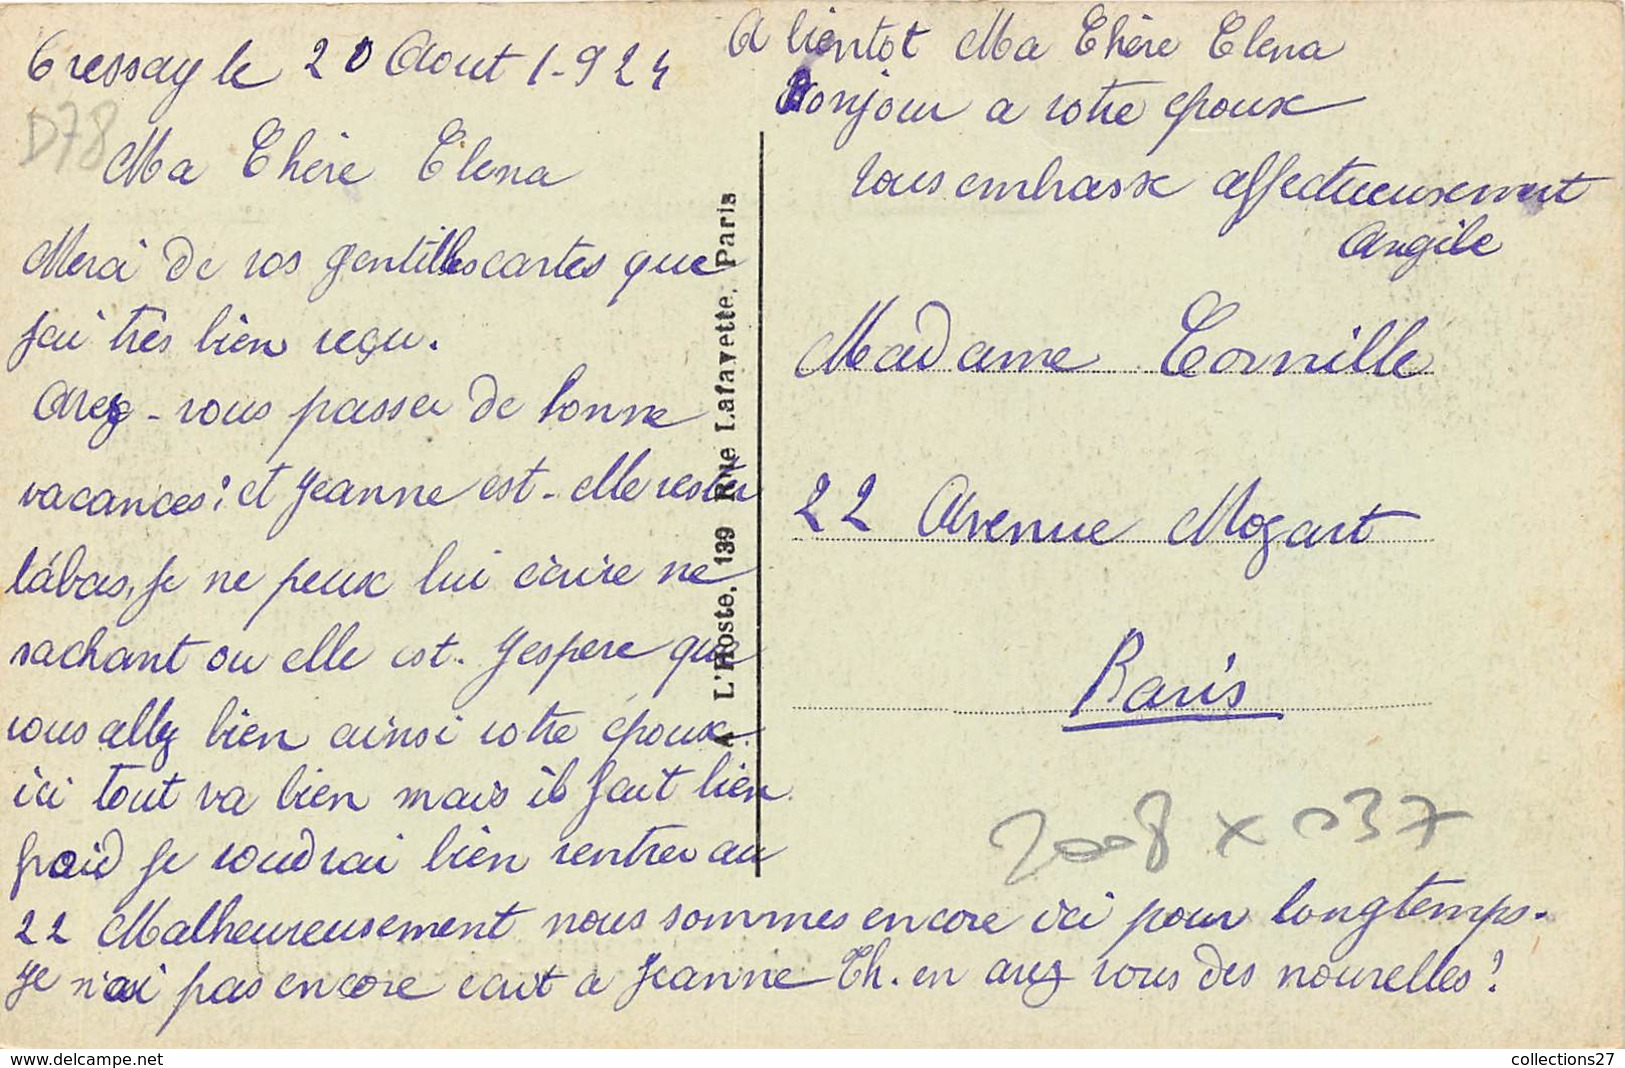 Gressay le 20 Aout 1924
Ma Chère Elena
Merci de vos gentilles cartes que
j'ai très bien reçu.
Avez-vous passer de bonne
vacances? et Jeanne est-elle rester
làbas, je ne peux lui écrire ne
sachant ou elle est. J'espere que
vous allez bien ainsi votre époux.
ici tout va bien mais il fait bien
froid je voudrai bien rentrer au
22 Malheureusement nous sommes encore ici pour longtemps.
Je n'ai pas encore ecrit a Jeanne Th. en avez vous des nouvelles?
A bientot Ma Chère Elena
Bonjour a votre epoux
Vous embrasse affectueusement
Angèle
Madame Cornille
22 Avenue Mozart
Paris
A. L'Hoste, 139 Rue Lafayette, Paris
D78
2008 x 037
www.delcampe.net
collections27